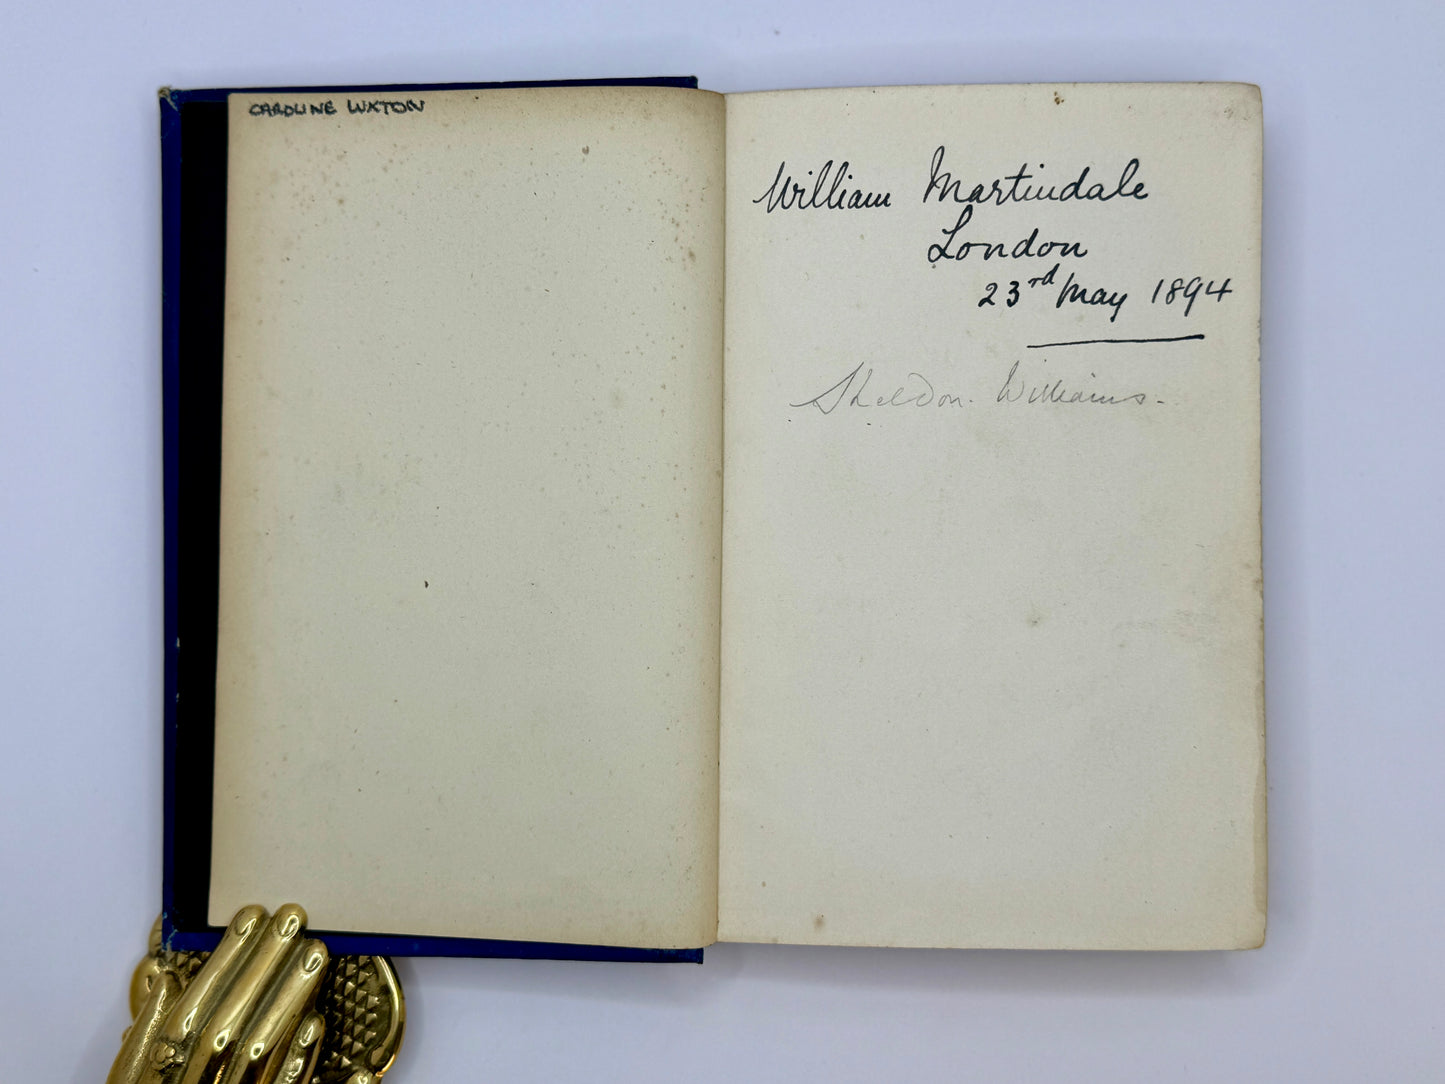 CAROLINE LUXTON
William Martindale
London
23rd May 1894
Sheldon. Williams.